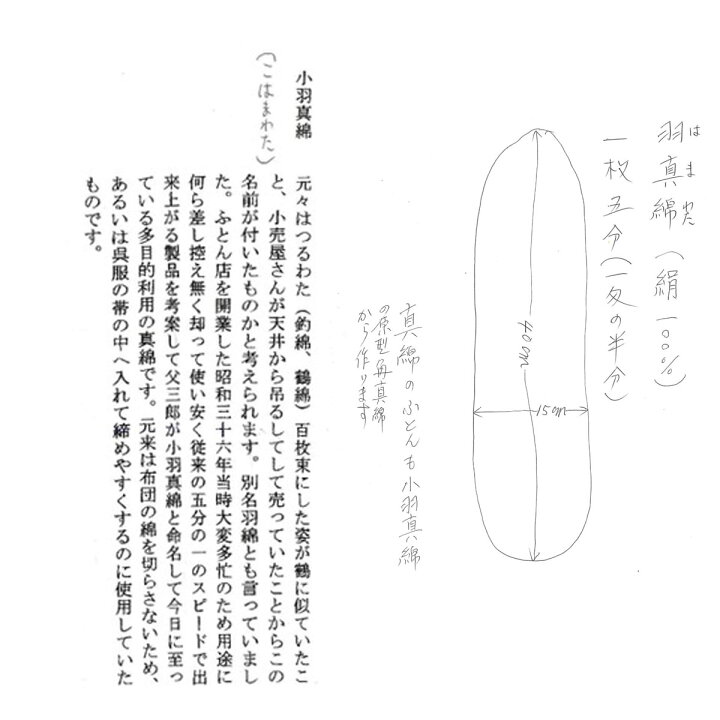 羽真綿(絹一〇〇%)
はまわた
一枚五分(一匁の半分)
40cm
15cm
真綿のふとんも小羽真綿
の原型角真綿
から作ります
小羽真綿
(こはまわた)
元々はつるわた(釣綿、鶴綿)百枚束にした姿が鶴に似ていたこ
と、小売屋さんが天井から吊るしてして売っていたことからこの
名前が付いたものかと考えられます。別名羽綿とも言っていまし
た。ふとん店を開業した昭和三十六年当時大変多忙のため用途に
何ら差し控え無く却って使い安く従来の五分の一のスピードで出
来上がる製品を考案して父三郎が小羽真綿と命名して今日に至っ
ている多目的利用の真綿です。元来は布団の綿を切らさないため、
あるいは呉服の帯の中へ入れて締めやすくするのに使用していた
ものです。